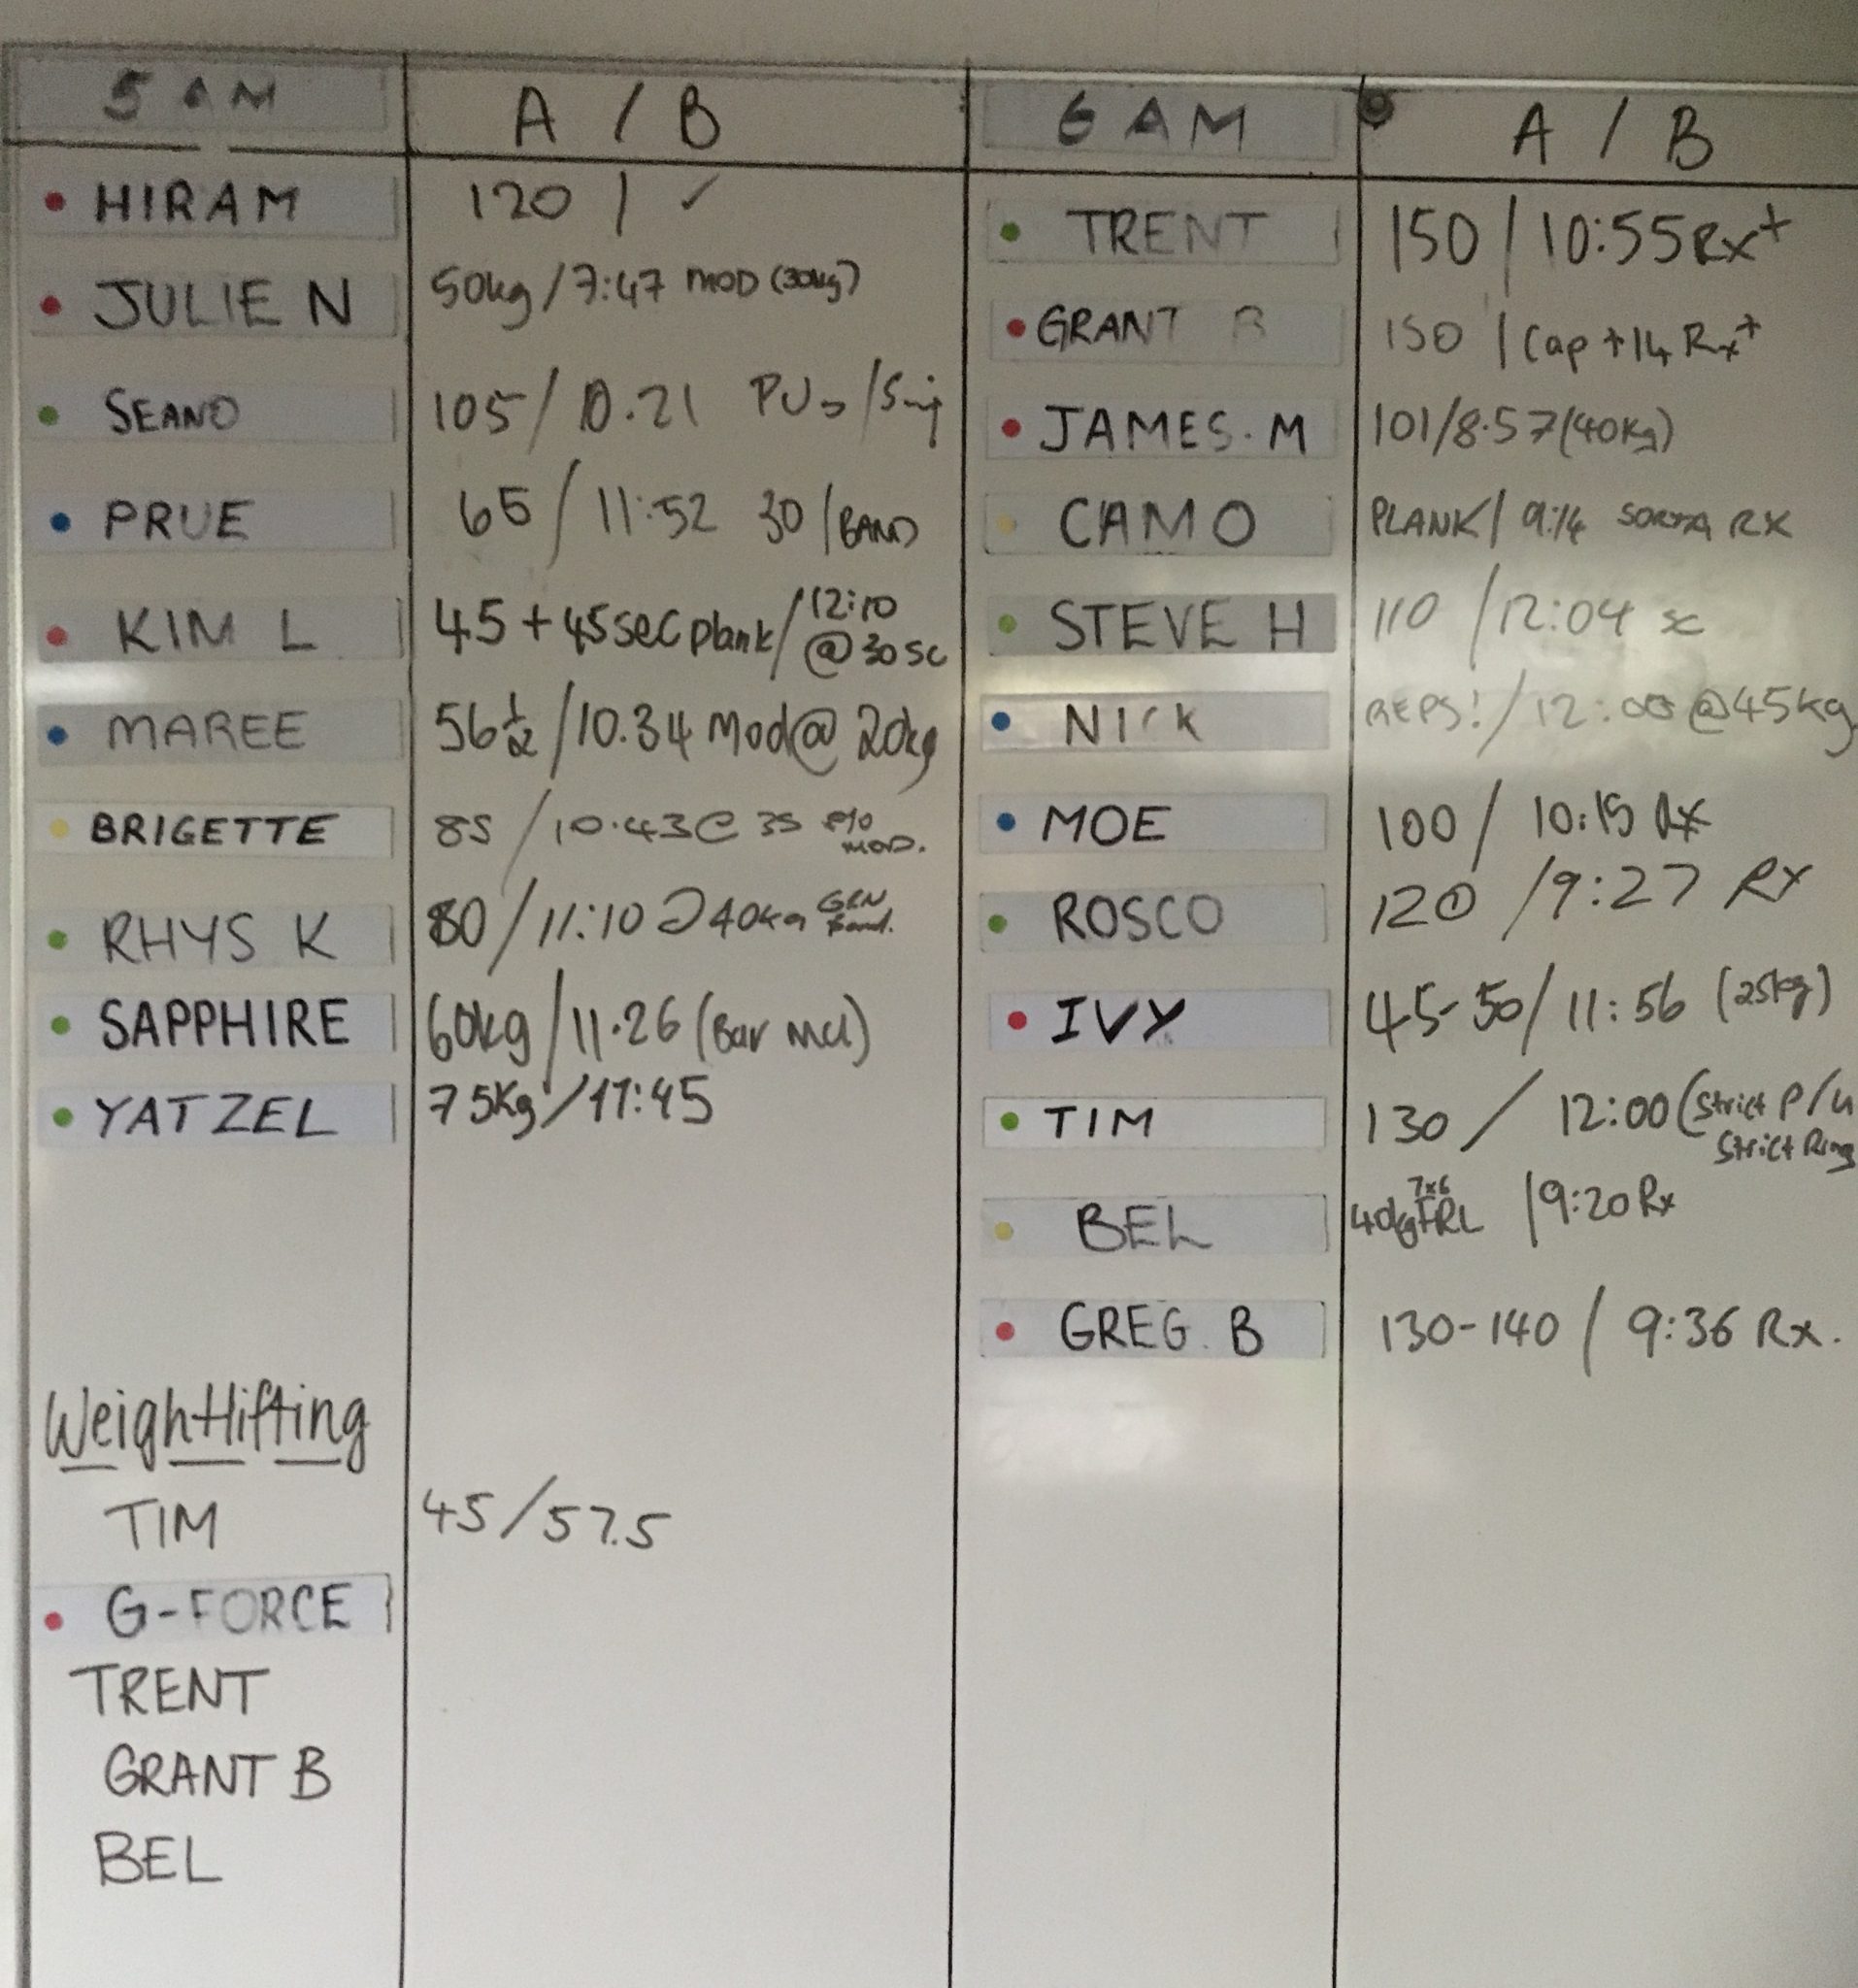 5 AM A / B
HIRAM 120 / ✓
JULIE N 50kg / 7:47 MOD (30kg)
SEANO 105 / 10.21 PUs /
PRUE 65 / 11:52 30 / BAND
KIM L 45 + 45 sec plank / 12:10
@ 30 sc
MAREE 56 ½ / 10.34 Mod @ 20kg
BRIGETTE 85 / 10.43 @ 35
MOD.
RHYS K 80 / 11:10 @ 40kg GRN
Band.
SAPPHIRE 60kg / 11.26 (Bar MU)
YATZEL 75Kg / 11:45
Weightlifting
TIM 45 / 57.5
G-FORCE
TRENT
GRANT B
BEL
6 AM A / B
TRENT 150 / 10:55 Rx+
GRANT B 150 / Cap + 14 Rx+
JAMES. M 101 / 8.57 (40Kg)
CAMO PLANK / 9:14 SORTA RX
STEVE H 110 / 12:04 sc
NICK REPS! / 12:08 @ 45kg
MOE 100 / 10:15 Rx
ROSCO 120 / 9:27 RX
IVY 45-50 / 11:56 (25kg)
TIM 130 / 12:00 (Strict P/U
Strict Ring
7x6
BEL 40kg FRL / 9:20 Rx
GREG. B 130-140 / 9:36 Rx.